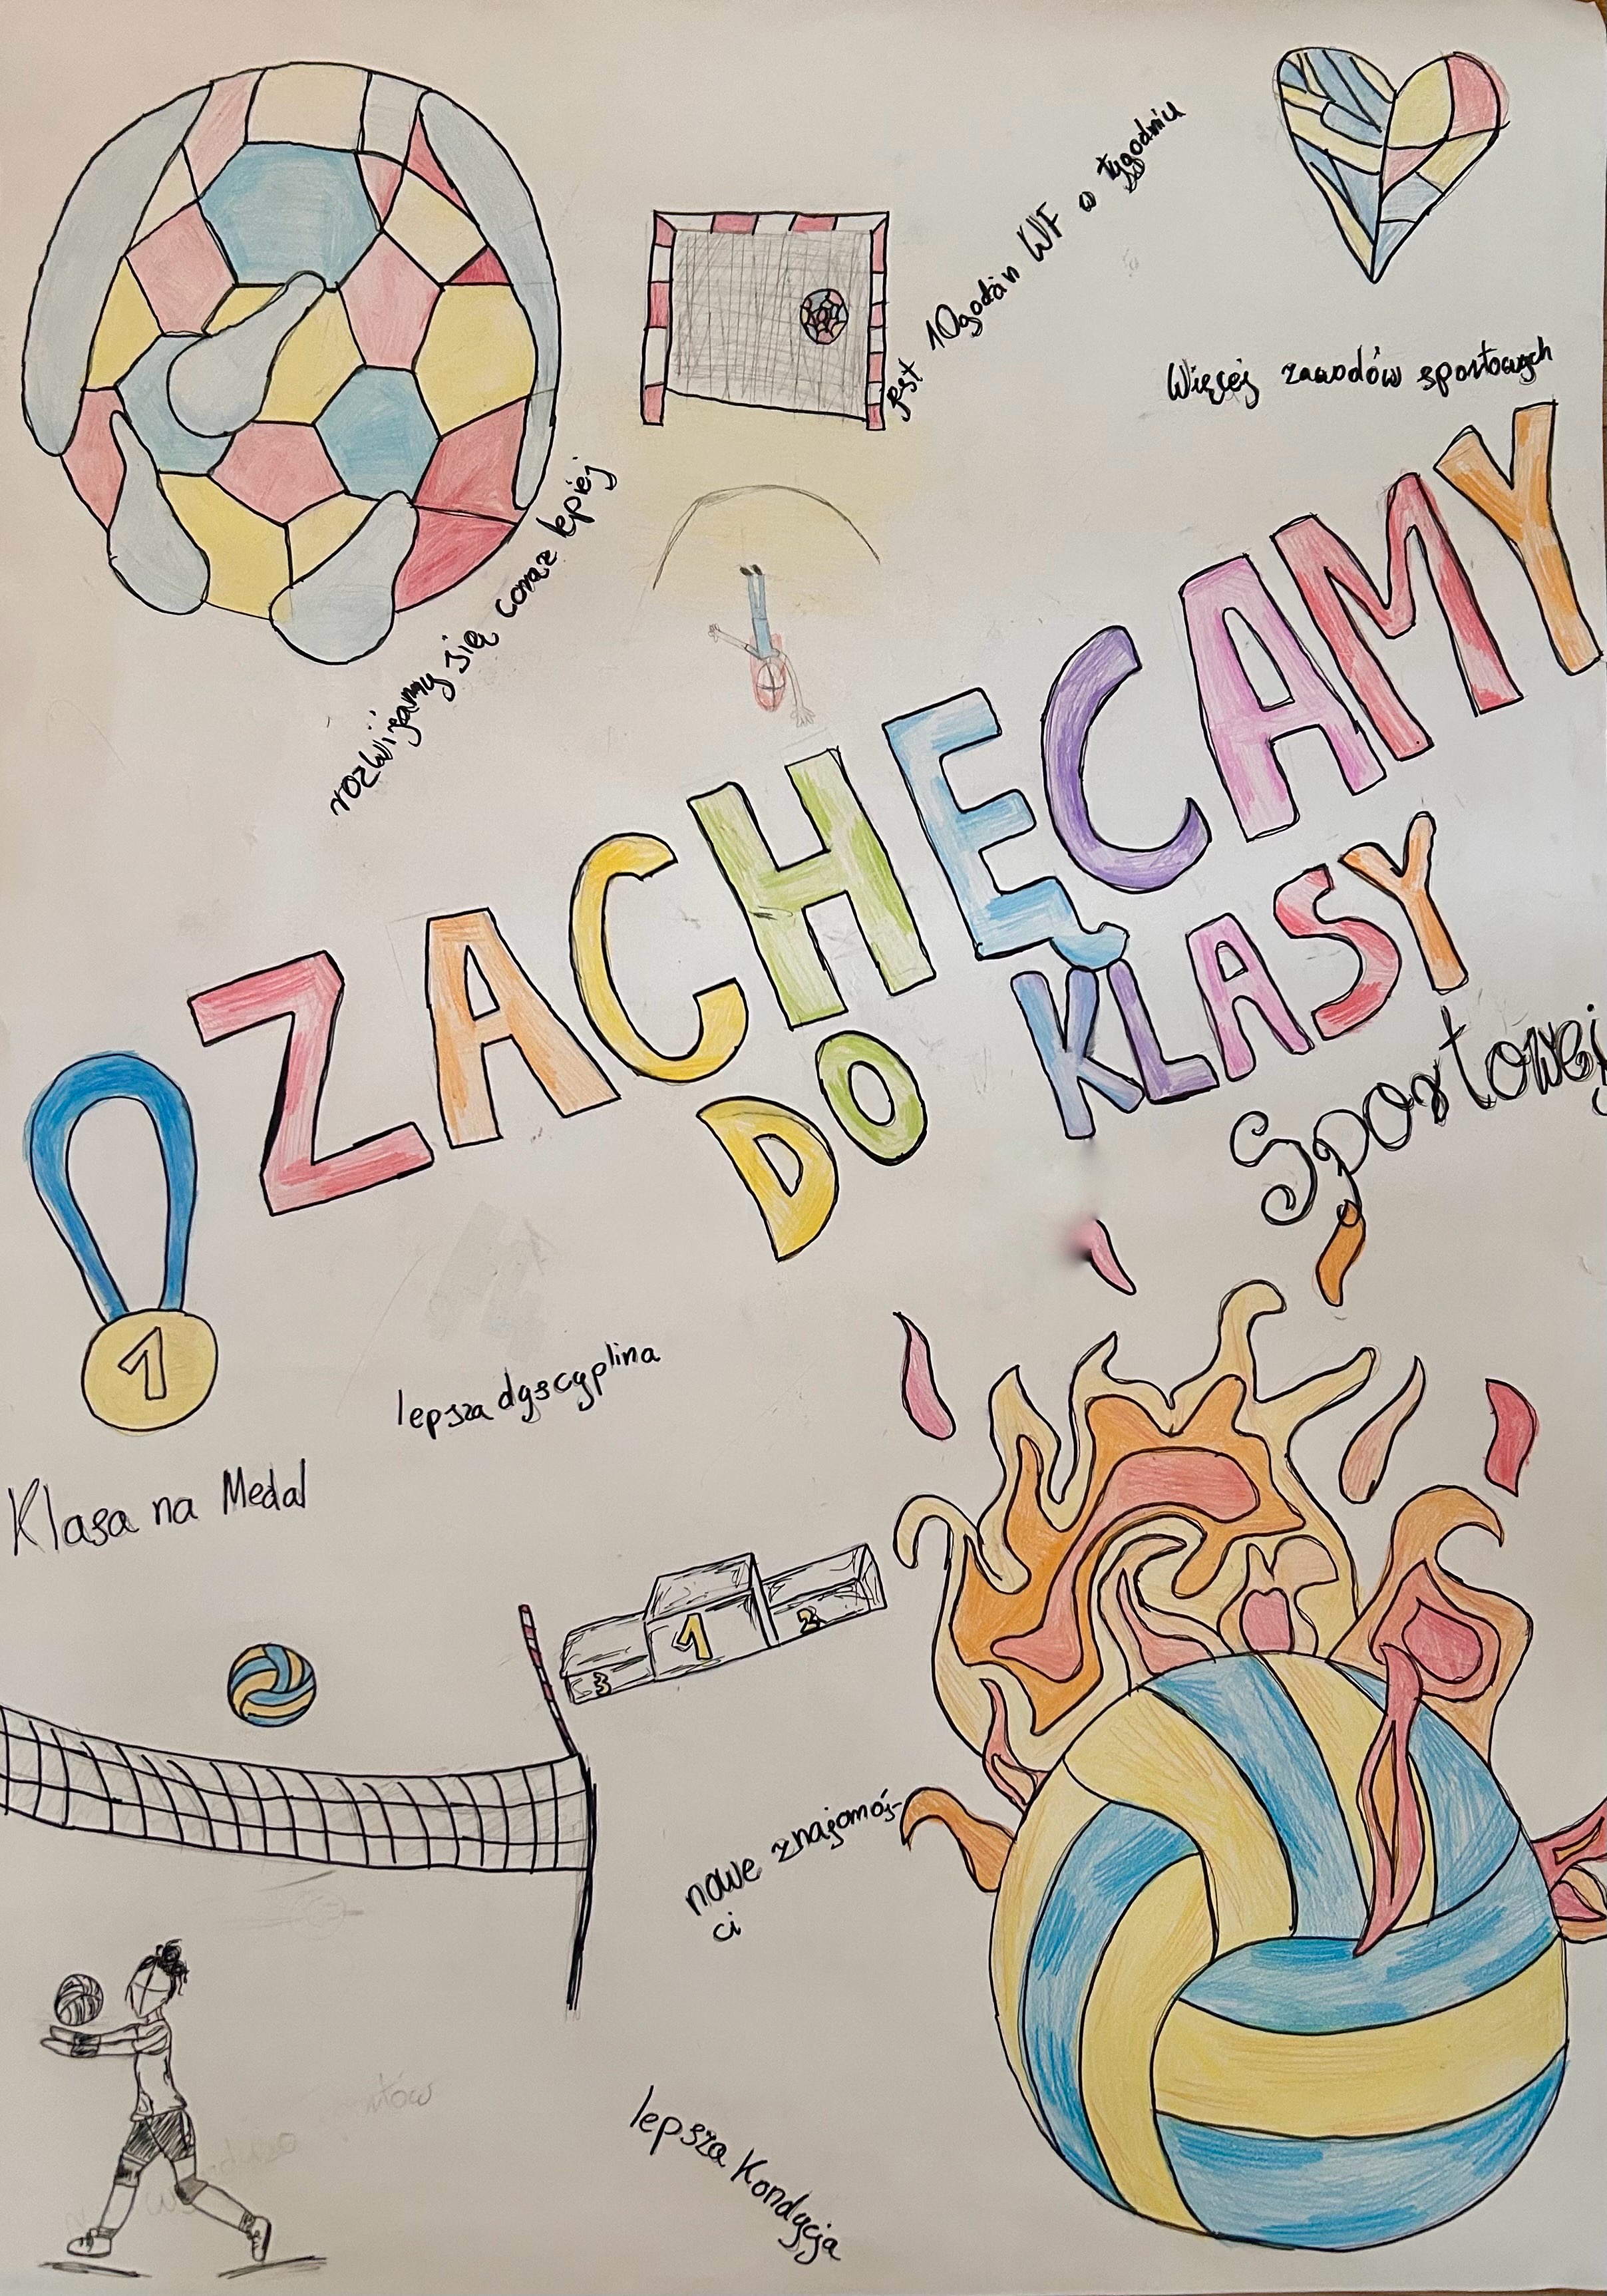 jest 10godzin WF w tygodniu
Więcej zawodów sportowych
rozwijamy się coraz lepiej
ZACHĘCAMY
DO KLASY
Sportowej
1
lepsza dyscyplina
Klasa na Medal
3 1 2
nowe znajomoś-
ci
lepsza Kondycja